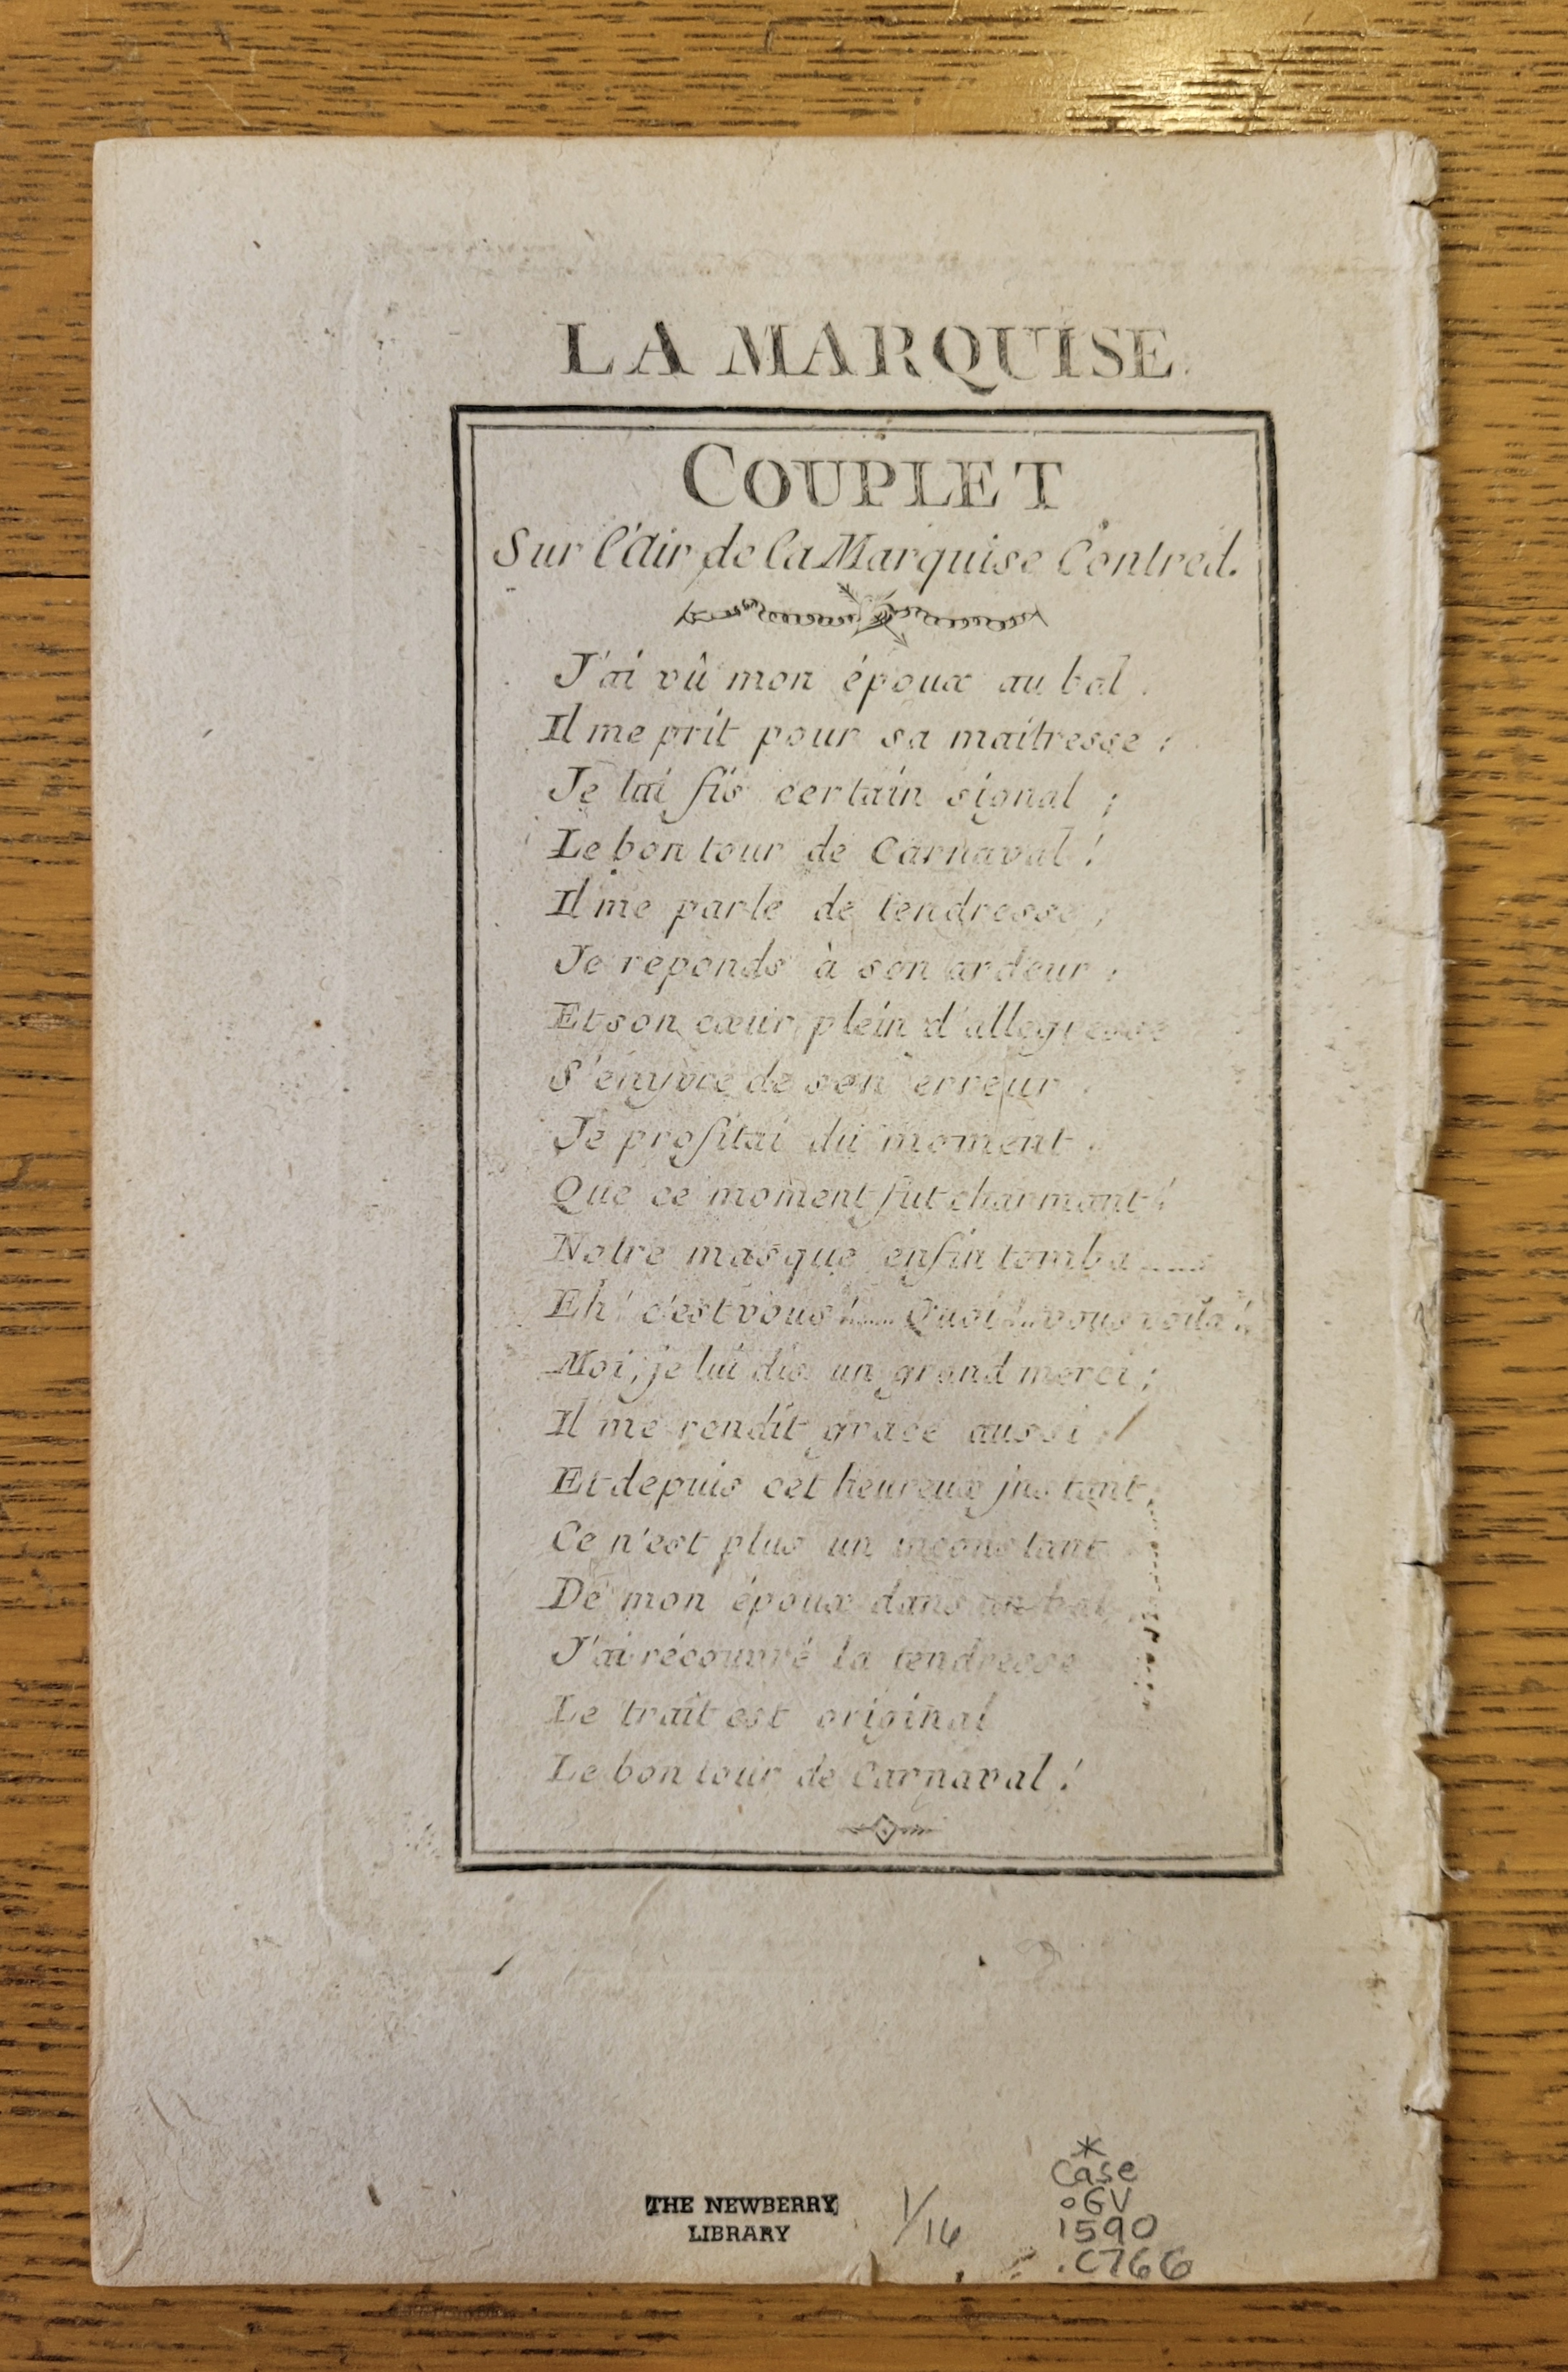 LA MARQUISE.
COUPLET
Sur l'Air de la Marquise Contred.
J'ai vû mon époux au bal.
Il me prit pour sa maitresse;
Je lui fis certain signal;
Le bon tour de Carnaval!
Il me parle de tendresse,
Je reponds à son ardeur,
Et son cœur plein d'allegresse
S'enyvre de son erreur.
Je profitai du moment.
Que ce moment fut charmant!
Notre masque enfin tomba......
Eh! c'est vous!...... Quoi!..vous voila!
Moi, je lui dis un grand merci;
Il me rendit grace aussi.
Et depuis cet heureux jnstant,
Ce n'est plus un inconstant
De mon époux dans un bal,
J'ai récouvré la tendresse
Le trait est original
Le bon tour de Carnaval!
THE NEWBERRY
LIBRARY
1/14
*
Case
oGV
1590
.C766